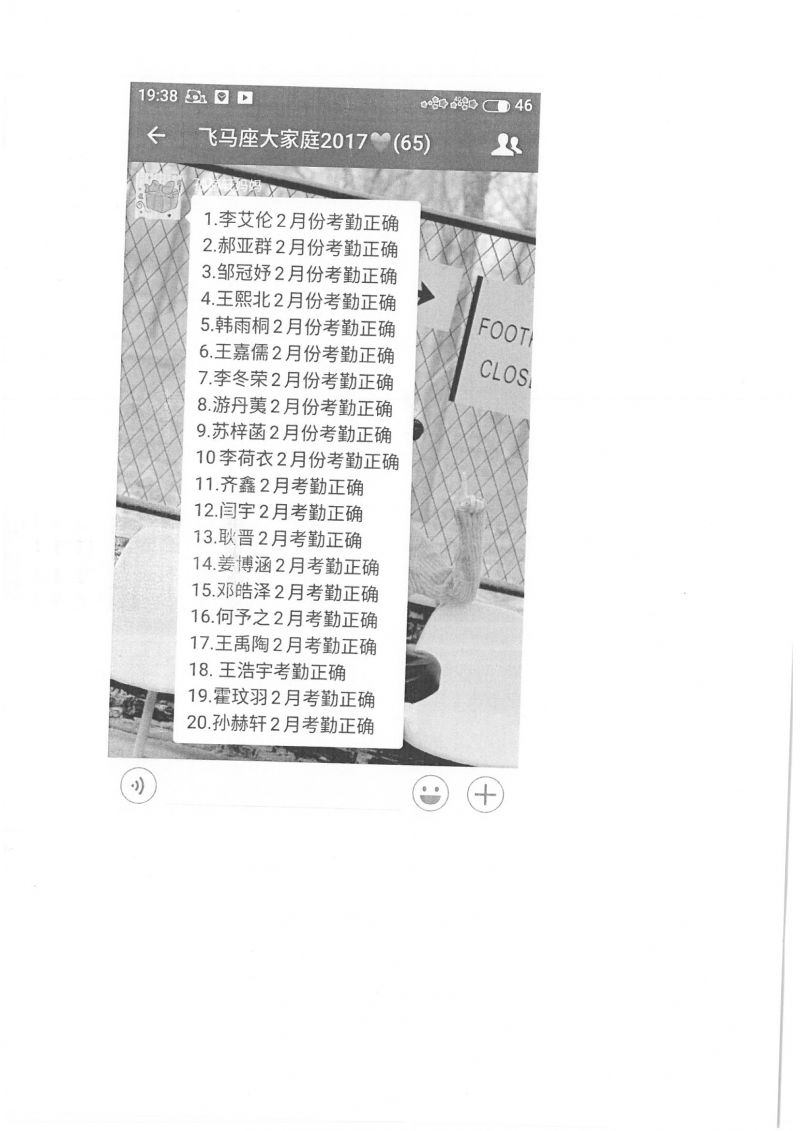 19:38
46
飞马座大家庭2017(65)
1.李艾伦2月份考勤正确
2.郝亚群2月份考勤正确
3.邹冠妤2月份考勤正确
4.王熙北2月份考勤正确
5.韩雨桐2月份考勤正确
6.王嘉儒2月份考勤正确
7.李冬荣2月份考勤正确
8.游丹荑2月份考勤正确
9.苏梓菡2月份考勤正确
10李荷衣2月份考勤正确
11.齐鑫2月考勤正确
12.闫宇2月考勤正确
13.耿晋2月考勤正确
14.姜博涵2月考勤正确
15.邓皓泽2月考勤正确
16.何予之2月考勤正确
17.王禹陶2月考勤正确
18. 王浩宇考勤正确
19.霍玟羽2月考勤正确
20.孙赫轩2月考勤正确
FOOT
CLOS